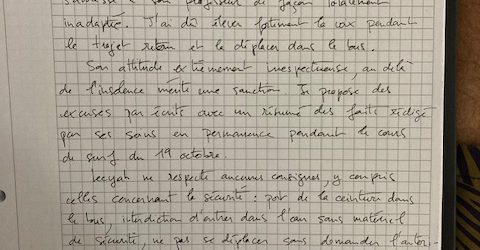 s'adresse à son professeur de façon totalement
inadaptée. J'ai dû élever fortement la voix pendant
le trajet retour et le déplacer dans le bus.
Son attitude extrêmement irrespectueuse, au delà
de l'insolence mérite une sanction. Je propose des
excuses par écrits avec un résumé des faits rédigé
par ses soins en permanence pendant le cours
de surf du 19 octobre.
ne respecte aucunes consignes, y compris
celles concernant la sécurité : port de la ceinture dans
le bus, interdiction d'entrer dans l'eau sans matériel
de sécurité, ne pas se déplacer sans demander l'autor-